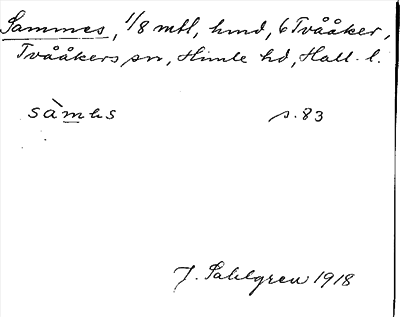 Sammes, 1/8 mtl, hmd, 6 Tvååker,
Tvååkers sn, Himle hd, Hall. l.
sàməs s. 83
J. Sahlgren 1918